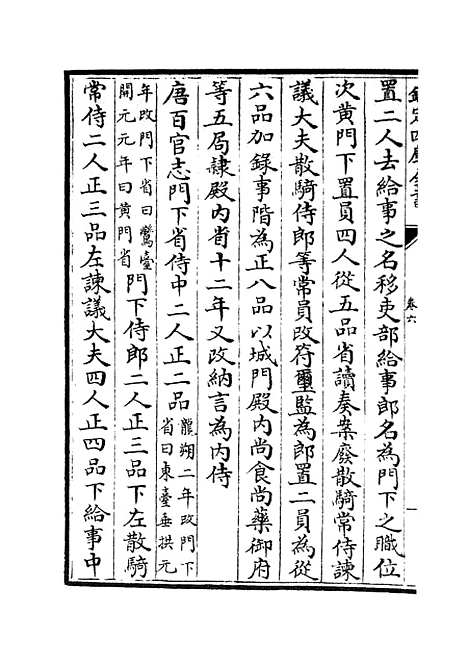 欽定四庫全書
卷六
置二人去給事之名移吏部給事郎名為門下之職位
次黃門下置員四人從五品省讀奏案廢散騎常侍諫
議大夫散騎侍郎等常員改符璽監為郎置二員為從
六品加錄事階為正八品以城門殿内尚食尚藥御府
等五局隸殿内省十二年又改納言為内侍
唐百官志門下省侍中二人正二品龍朔二年改門下省曰東臺垂拱元
年改門下省曰鸞臺開元元年曰黃門省門下侍郎二人正三品下左散騎
常侍二人正三品左諫議大夫四人正四品下給事中